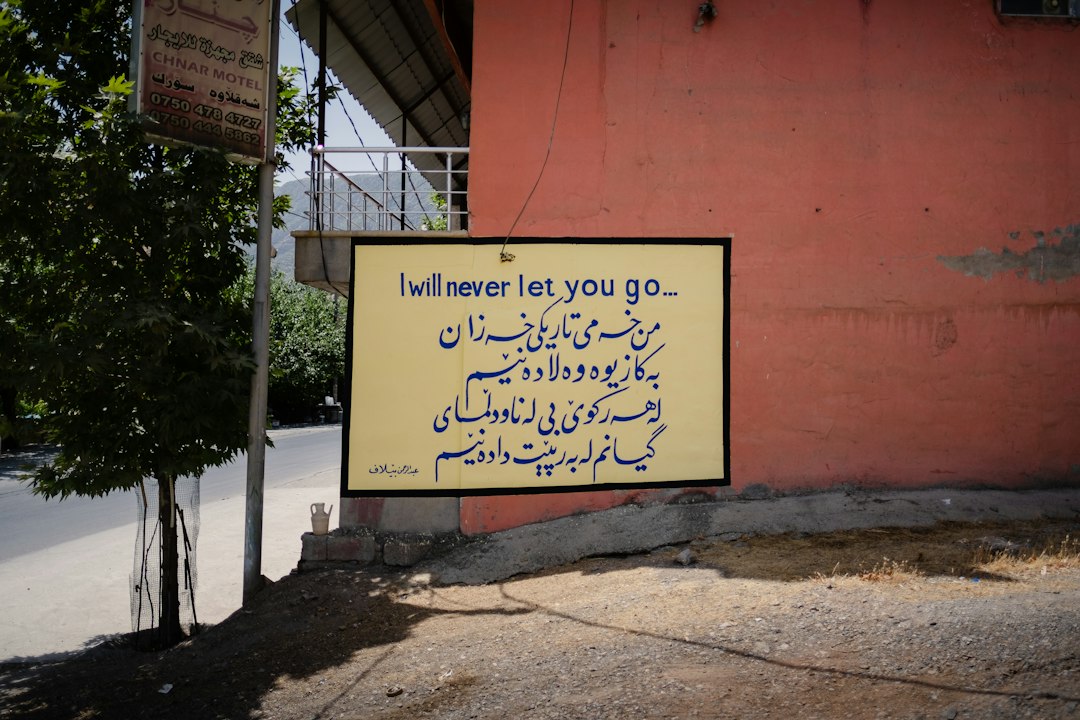 چنار
شقق مجهزة للايجار
CHNAR MOTEL
شەقلاوە - سۆرك
0750 478 4727
0750 444 5862
I will never let you go...
من خەمی تاریکی خەزان
بە کازیوە وەلا دەنێم
لە هەر کوێ بی لە ناو دلمای
گیانم لە بەر پێت دادەنێم